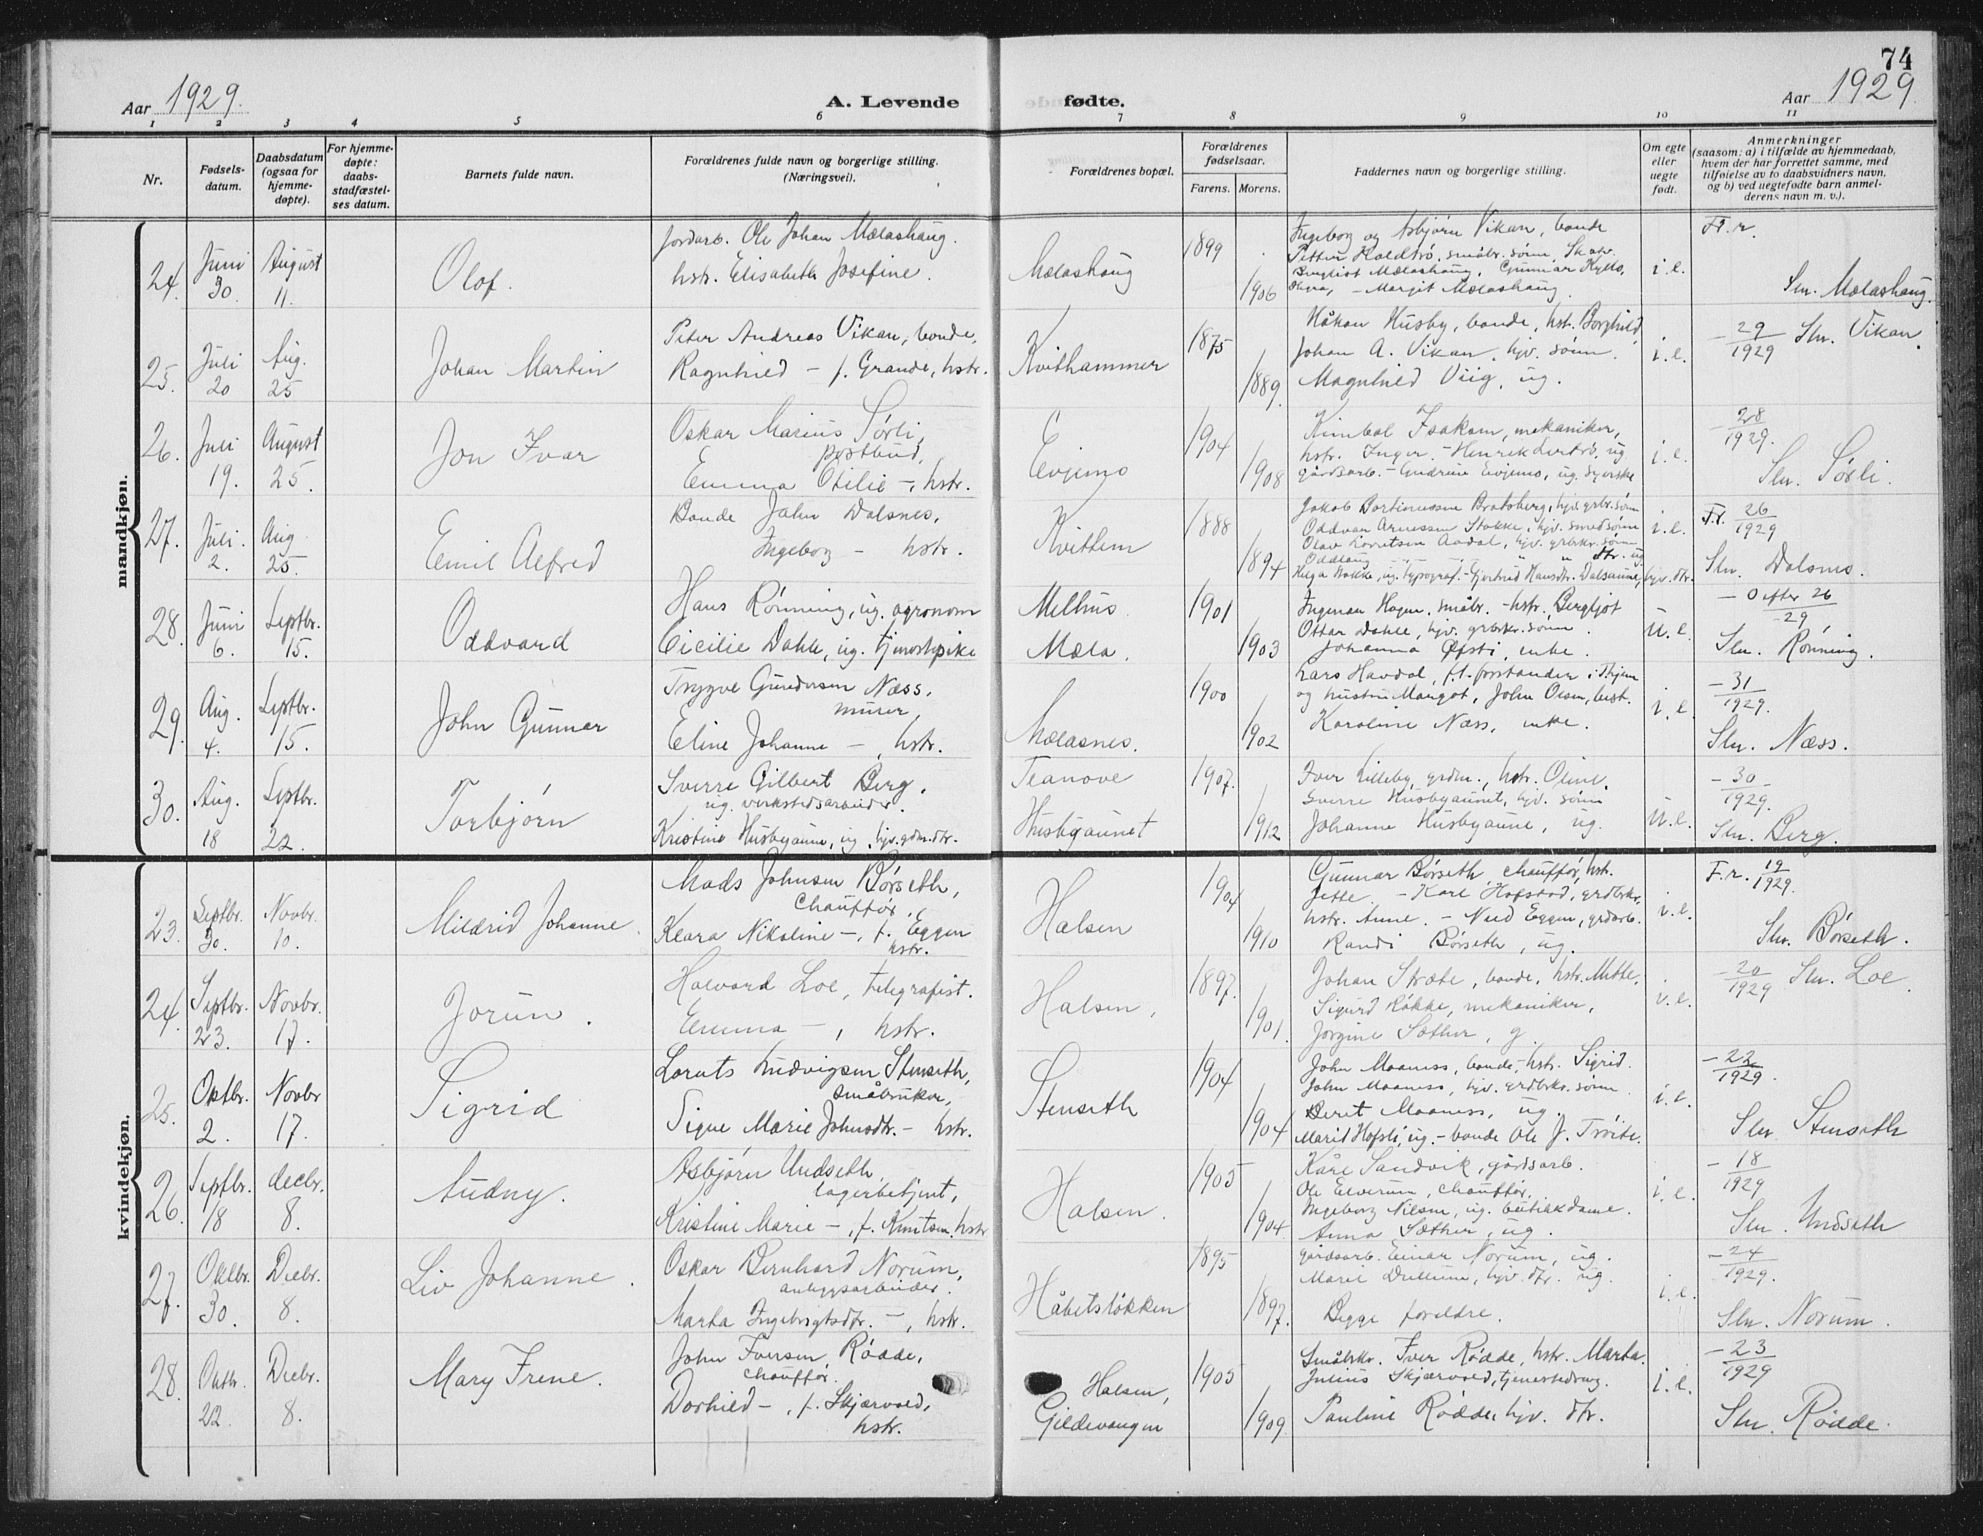 74
Aar 1929.
A. Levende
fødte.
Aar 1929
1 2 3 4 5 6 7 8 9 10 11
Nr.
Fødsels-
datum.
Daabsdatum
(ogsaa for
hjemme-
døpte).
For hjemme-
døpte:
daabs-
stadfæstel-
ses datum.
Barnets fulde navn.
Forældrenes fulde navn og borgerlige stilling.
(Næringsvei).
Forældrenes bopæl.
Forældrenes
fødselsaar.
Farens. Morens.
Faddernes navn og borgerlige stilling.
Om egte
eller
uegte
født.
Anmerkninger
(saasom: a) i tilfælde av hjemmedaab,
hvem der har forrettet samme, med
tilføielse av to daabsvidners navn,
og b) ved uegtefødte barn anmel-
derens navn m. v.).
mandkjøn.
24.
Juni
30.
August
11.
Olof.
Jordarb. Ole Johan Mælashaug.
hstr. Elisabeth Josefine.
Mælashaug
1899
1906
Ingeborg og Asbjørn Vikan, bonde
Petter Haldbrø, småbr. sønn,
Bergliot Mælashaug, Gunnar
Margit Mælashaug.
i. e.
F. r.
Sln. Mælashaug.
25.
Juli
20
Aug.
25
Johan Martin
Peter Andreas Vikan, bonde,
Ragnhild – f. Grande, hstr.
Kvithammer
1875
1889.
Håkon Husby, bonde, hst. Borghild,
Johan A. Vikan, hjv. sønn.
Magnhild Viig, ug.
i. e.
– 29/1929 Sln. Vikan.
26.
Juli
19.
August
25.
Jon Ivar
Oskar Marius Sørli,
postbud,
Emma Otilie –, hstr.
Evjemo
1904
1908
Kimbal Isaksen, mekaniker,
hstr. Inger. – Henrik ug.
gårdsarb. – Gudrun Evjemo, ug. syerske
i. e.
– 28/1929.
Sln. Sørli.
27.
Juli.
2.
Aug
25.
Emil Alfred
Bonde John Dalsnes,
Ingeborg – hstr.
Kvitlem
1888
1894
Jakob Bortinussøn Bratsberg, hjv. grbr. søn
Oddvar Arnessen Stokke, hjv. smedsønn
Olav Lorntsen Aadal, hjv. grbrkr. sønn
Oddlaug – " – " – dtr. ug.
Helga Stokke, ug. typograf. – Gjertrud Hansdtr. Dalsaune, hjv. dtr.
i. e.
F. r. 26/1929
Sln. Dalsnes.
28.
Juni
6.
Septbr.
15.
Oddvard
Hans Rønning, ug. agronom
Cicilie Dahle, ug. tjenestepike
Melhus
Mæla.
1901
1903
Ingemar Hagen, småbr. – hstr. Bergljot
Ottar Dahle, hjv. grbrkr. sønn.
Johanna Øfsti, enke.
u. e.
– 0 efter 26/29
Sln. Rønning.
29.
Aug.
4.
Septbr.
15.
John Gunnar
Trygve Gundersen Næss,
murer,
Eline Johanne –, hstr.
Mælasnes.
1900
1902
Lars Havdal, f.t. forstander i
og hustru Margot, John Olsen, best.
Karoline Næss, enke.
i. e.
– 31/1929.
Sln. Næss.
30.
Aug.
18
Septbr.
22.
Torbjørn
Sverre Gilbert Berg,
ug. verkstedsarbeider.
Kristine Husbyaune, ug. hjv. gdm. dtr.
Leanove
Husbyaunet
1907.
1912
Iver Lilleby, grdm., hstr. Oline,
Sverre Husbyaunet, hjv. sønn
Johanne Husbyaune, ug.
u. e.
– 30/1929.
Sln. Berg.
kvindekjøn.
23.
Septbr.
30.
Novbr.
10.
Mildrid Johanne.
Mads Johnsen Børseth,
Chauffør,
Klara Nikoline –, f. Eggen
hstr.
Halsen
1904
1910
Gunnar Børseth, chauffør, hstr.
Jette. – Karl Hofstad, grdbrkr,
hstr. Anne. – Nils Eggen, grdarb.
Randi Børseth, ug.
i. e.
F. r. 19/1929.
Sln. Børseth.
24.
Septbr.
23.
Novbr.
17.
Jorun.
Halvard Loe, telegrafist.
Emma –, hstr.
Halsen,
1897.
1901.
Johan Stræte, bonde, hstr. Mette,
Sigurd Kåkke, mekaniker,
Jorgine Sæther, g.
i. e.
– 20/1929 Sln. Loe.
25.
Oktbr.
2.
Novbr
17.
Sigrid
Lornts Ludvigsen Stenseth,
Småbruker,
Signe Marie Johnsdtr. – hstr.
Stenseth
1904
1904
John Moaness, bonde, hstr. Sigrid.
John Moaness, hjv. grdbrkr. sønn
Beret Moaness, ug.
Marit Hofsli, ug. – bonde Ole J. Trøite.
i. e.
– 22/1929.
Sln. Stenseth
26.
Septbr.
18
decbr.
8.
Audny.
Asbjørn Undseth,
lagerbetjent,
Kristine Marie –, f. Knutsen, hstr
Halsen.
1905
1904
Kåre Sandvik, gårdsarb.
Ole Elverum, chauffør,
Ingeborg Nilsen, ug. butikkdame.
Anna Sæther, ug.
i. e.
– 18/1929
Sln. Undseth
27.
Oktbr.
30.
Decbr.
8.
Liv Johanne.
Oskar Bernhard Norum,
anleggsarbeider.
Marta Ingebrigtsdtr. –, hstr.
Håbetsløkken
1895
1897.
gårdsarb. Einar Norum, ug.
Marie Drillum, hjv. dtr. ug.
Begge foreldre.
i. e.
– 24/1929.
Sln. Norum.
28.
Oktbr.
22.
Decbr.
8.
Mary Irene.
John Iversen Rødde,
chauffør,
Dorhild –, f. Skjærvold,
hstr.
Halsen,
Gildevangen
1905
1909
Småbkr. Iver Rødde, hstr. Marta.
Julius Skjærvold, tjenestedreng.
Pauline Rødde, hjv. dtr.
i. e.
– 23/1929
Sln. Rødde.